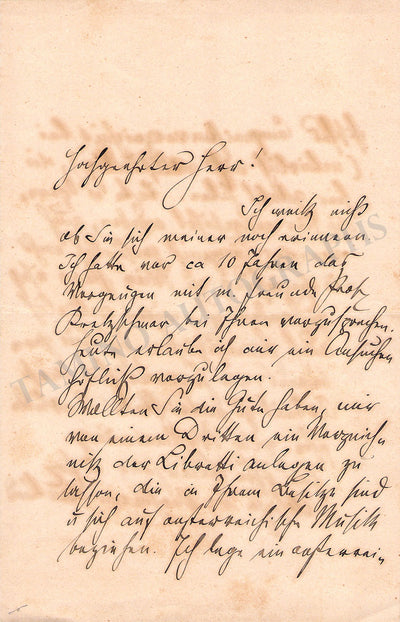 Hochgeehrter Herr!
Ich weiß nicht
ob Sie sich meiner noch erinnern
Ich hatte vor ca 10 Jahren das
Vergnügen mit m. Freunde Prof.
Kretzschmar bei Ihnen vorzusprechen.
Heute erlaube ich mir ein Ansuchen
höflichst vorzulegen.
Wollten Sie die Güte haben, mir
von einem Dritten ein Verzeich-
niß der Libretti anlegen zu
lassen, die in Ihrem Besitze sind
u sich auf österreichische Musik
beziehen. Ich lege ein österrei-
TAMINO AUTOGRAPHS